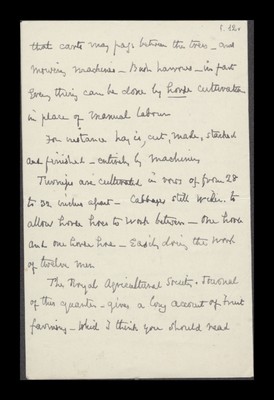 that carts may pass between the trees - and
mowing machines - Bush harrows - in fact
Every thing can be done by horse cultivation
in place of manual labour
For instance hay is, cut, made, stacked
and finished - entirely by machinery
Turnips are cultivated in rows of from 28
to 32 inches apart - Cabbages still wider. to
allow horse hoes to work between - one horse
and one horse hoe - Easily doing the work
of twelve men
The Royal Agricultural Society's Journal
of this quarter - gives a long account of fruit
farming - which I think you should read